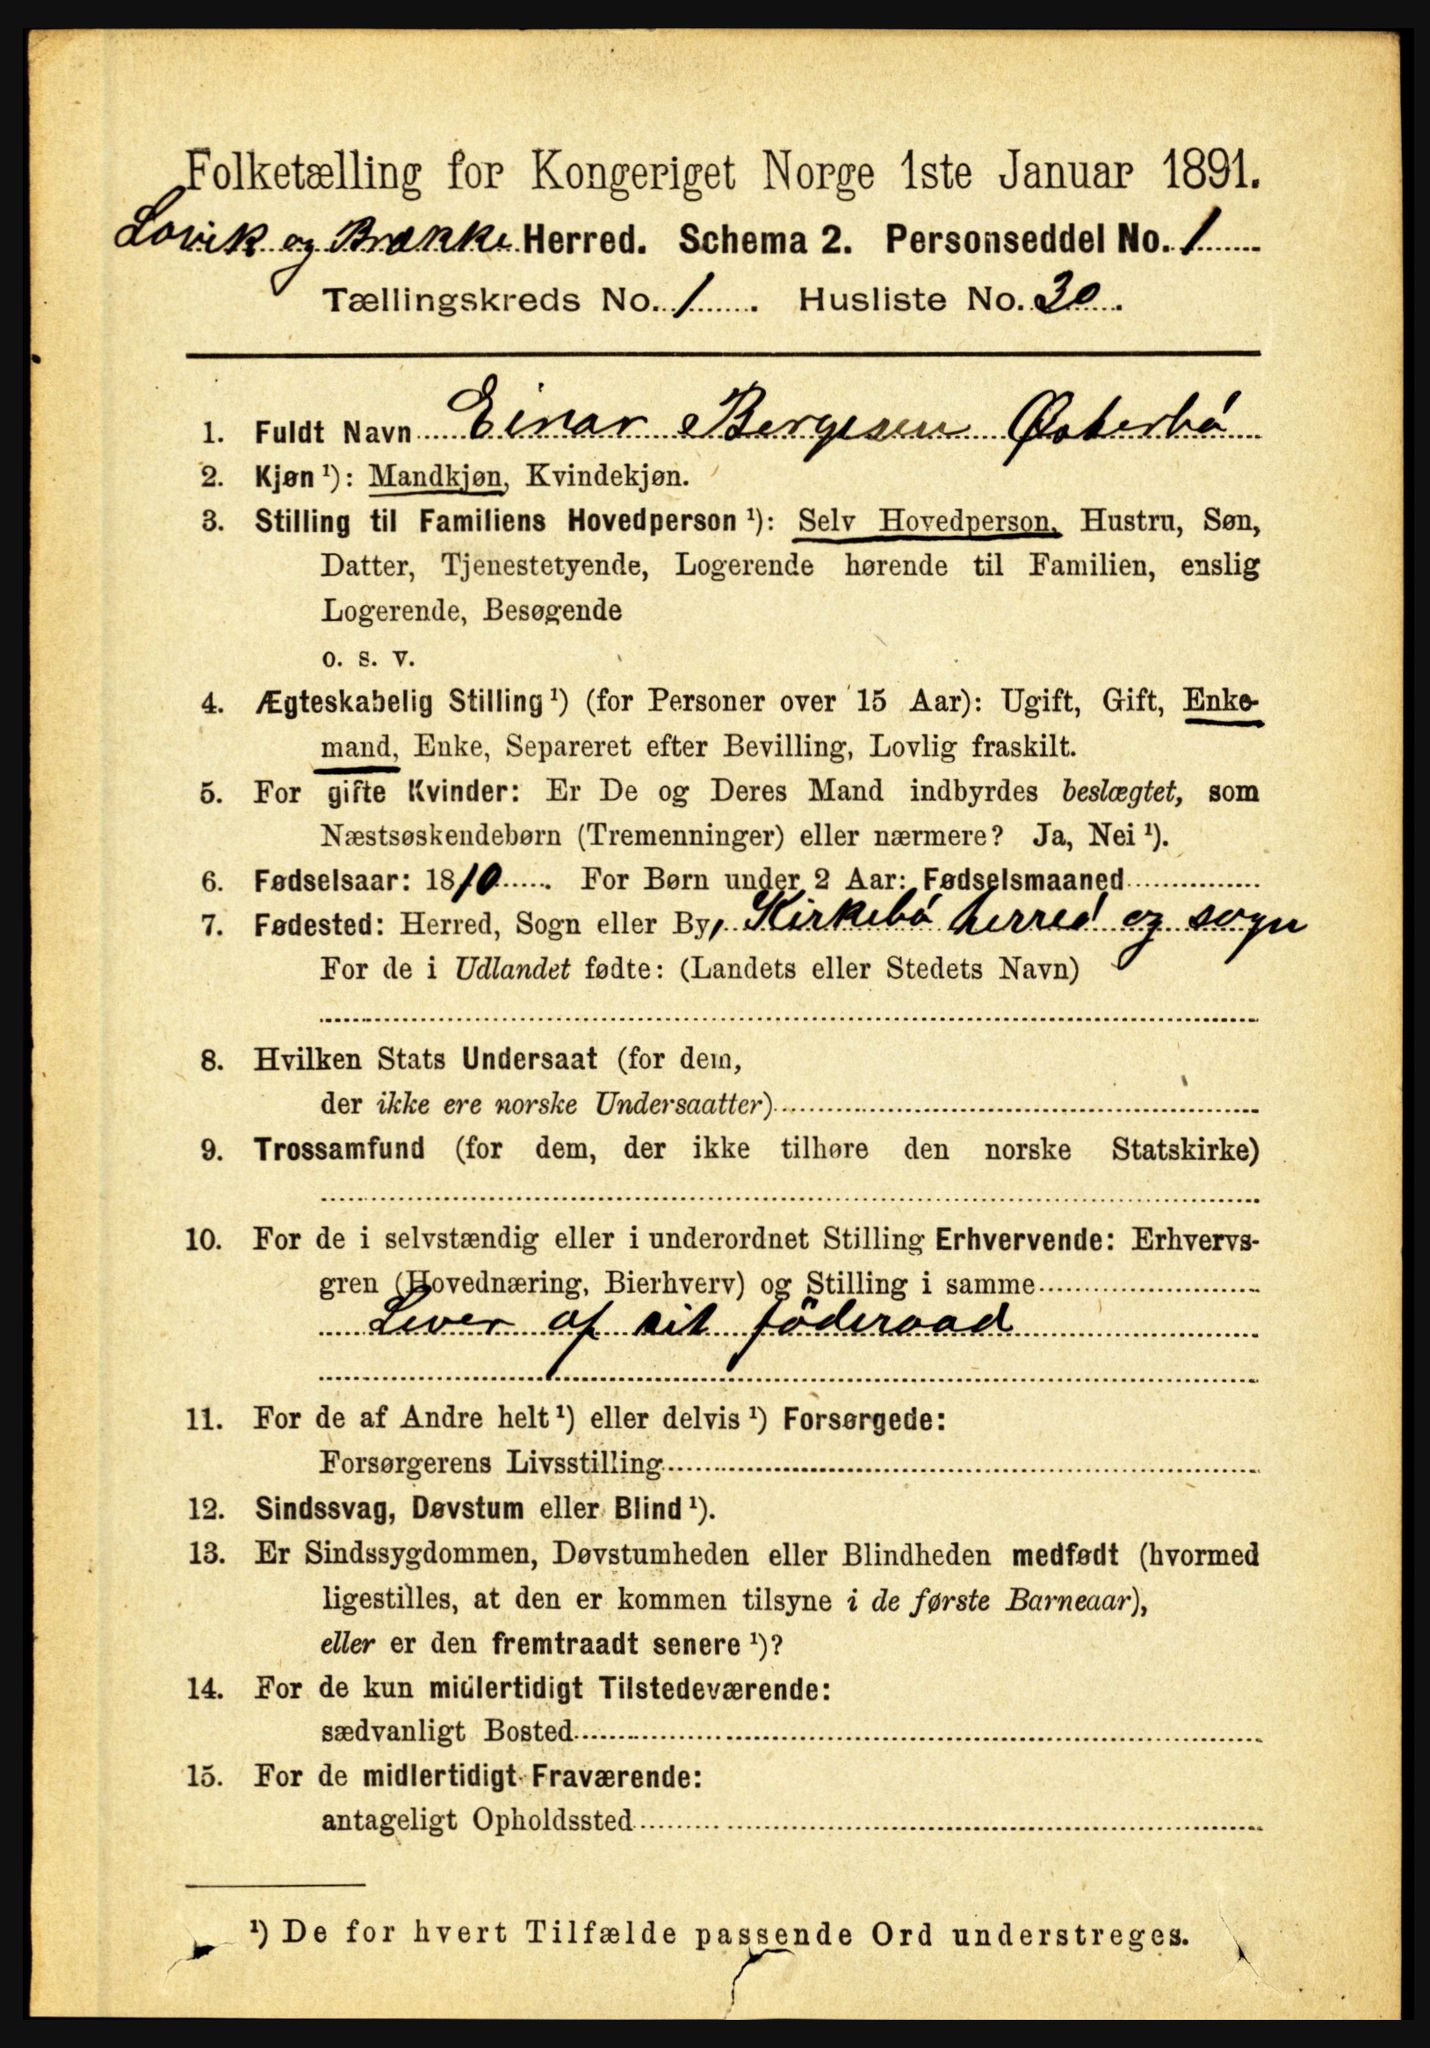 Folketælling for Kongeriget Norge 1ste Januar 1891.
Lavik og Brække Herred. Schema 2. Personseddel No. 1
Tællingskreds No. 1. Husliste No. 30.
1. Fuldt Navn Einar Bergesen Østerbó
2. Kjøn ¹): Mandkjøn, Kvindekjøn.
3. Stilling til Familiens Hovedperson ¹): Selv Hovedperson, Hustru, Søn,
Datter, Tjenestetyende, Logerende hørende til Familien, enslig
Logerende, Besøgende
o. s. v.
4. Ægteskabelig Stilling ¹) (for Personer over 15 Aar): Ugift, Gift, Enke-
mand, Enke, Separeret efter Bevilling, Lovlig fraskilt.
5. For gifte Kvinder: Er De og Deres Mand indbyrdes beslægtet, som
Næstsøskendebørn (Tremenninger) eller nærmere? Ja, Nei ¹).
6. Fødselsaar: 1810. For Børn under 2 Aar: Fødselsmaaned
7. Fødested: Herred, Sogn eller By, Kirkebó herred og sogn
For de i Udlandet fødte: (Landets eller Stedets Navn)
8. Hvilken Stats Undersaat (for dem,
der ikke ere norske Undersaatter)
9. Trossamfund (for dem, der ikke tilhøre den norske Statskirke)
10. For de i selvstændig eller i underordnet Stilling Erhvervende: Erhvervs-
gren (Hovednæring, Bierhverv) og Stilling i samme
Lever af sit föderaad
11. For de af Andre helt ¹) eller delvis ¹) Forsørgede:
Forsørgerens Livsstilling
12. Sindssvag, Døvstum eller Blind ¹).
13. Er Sindssygdommen, Døvstumheden eller Blindheden medfødt (hvormed
ligestilles, at den er kommen tilsyne i de første Barneaar),
eller er den fremtraadt senere ¹)?
14. For de kun midlertidigt Tilstedeværende:
sædvanligt Bosted
15. For de midlertidigt Fraværende:
antageligt Opholdssted
¹) De for hvert Tilfælde passende Ord understreges.